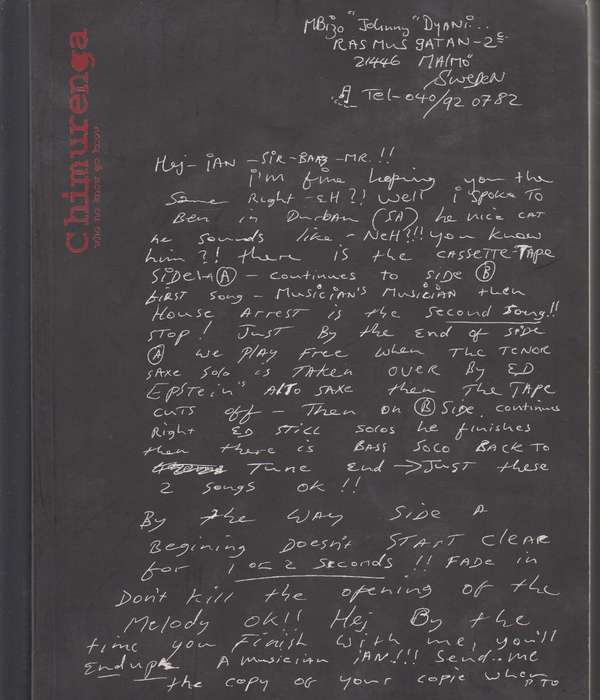 Chimurenga
who no know go know
MBizo "Johnny" Dyani...
RASMUSGATAN-2c
21446 MALMÖ
Sweden
Tel-040/92 0782
Hej- iAN -SiR-BAAS-MR.!!
i'm fine hoping you the
Same Right -EH?! Well i spoke TO
Ben in Durban (SA) he nice cat
he sounds like - NeH?!! you know
him?! there is the CASSETTE-TAPE
SiDE A - continues to side B
first song - Musician's Musician then
House Arrest is the second song!!
Stop! Just By the end of side
A we play free when the TENOR
SAXE Solo is TAKEN OVER By ED
EpStein" AltO SAXE then The TAPE
cuts off - Then on B Side continues
Right ED STill solos he finishes
then there is BASS SOLO BACK TO
Tune End → Just these
2 songs ok!!
By the way Side A
Begining Doesn't START clear
for 1 or 2 seconds!! FADE in
Don't kill the opening of the
Melody ok!! Hej By the
time you Finish With me, you'll
End up A musician iAN!!! Send..me
the copy or your copie when
P.TO